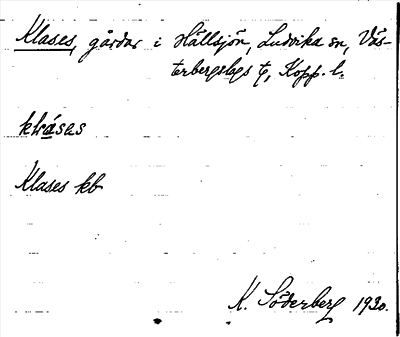 Klases, gårdar i Hällsjön, Ludvika sn, Väs-
terbergslags tg, Kopp. l.
klásas
Klases kb
K. Söderberg 1930.